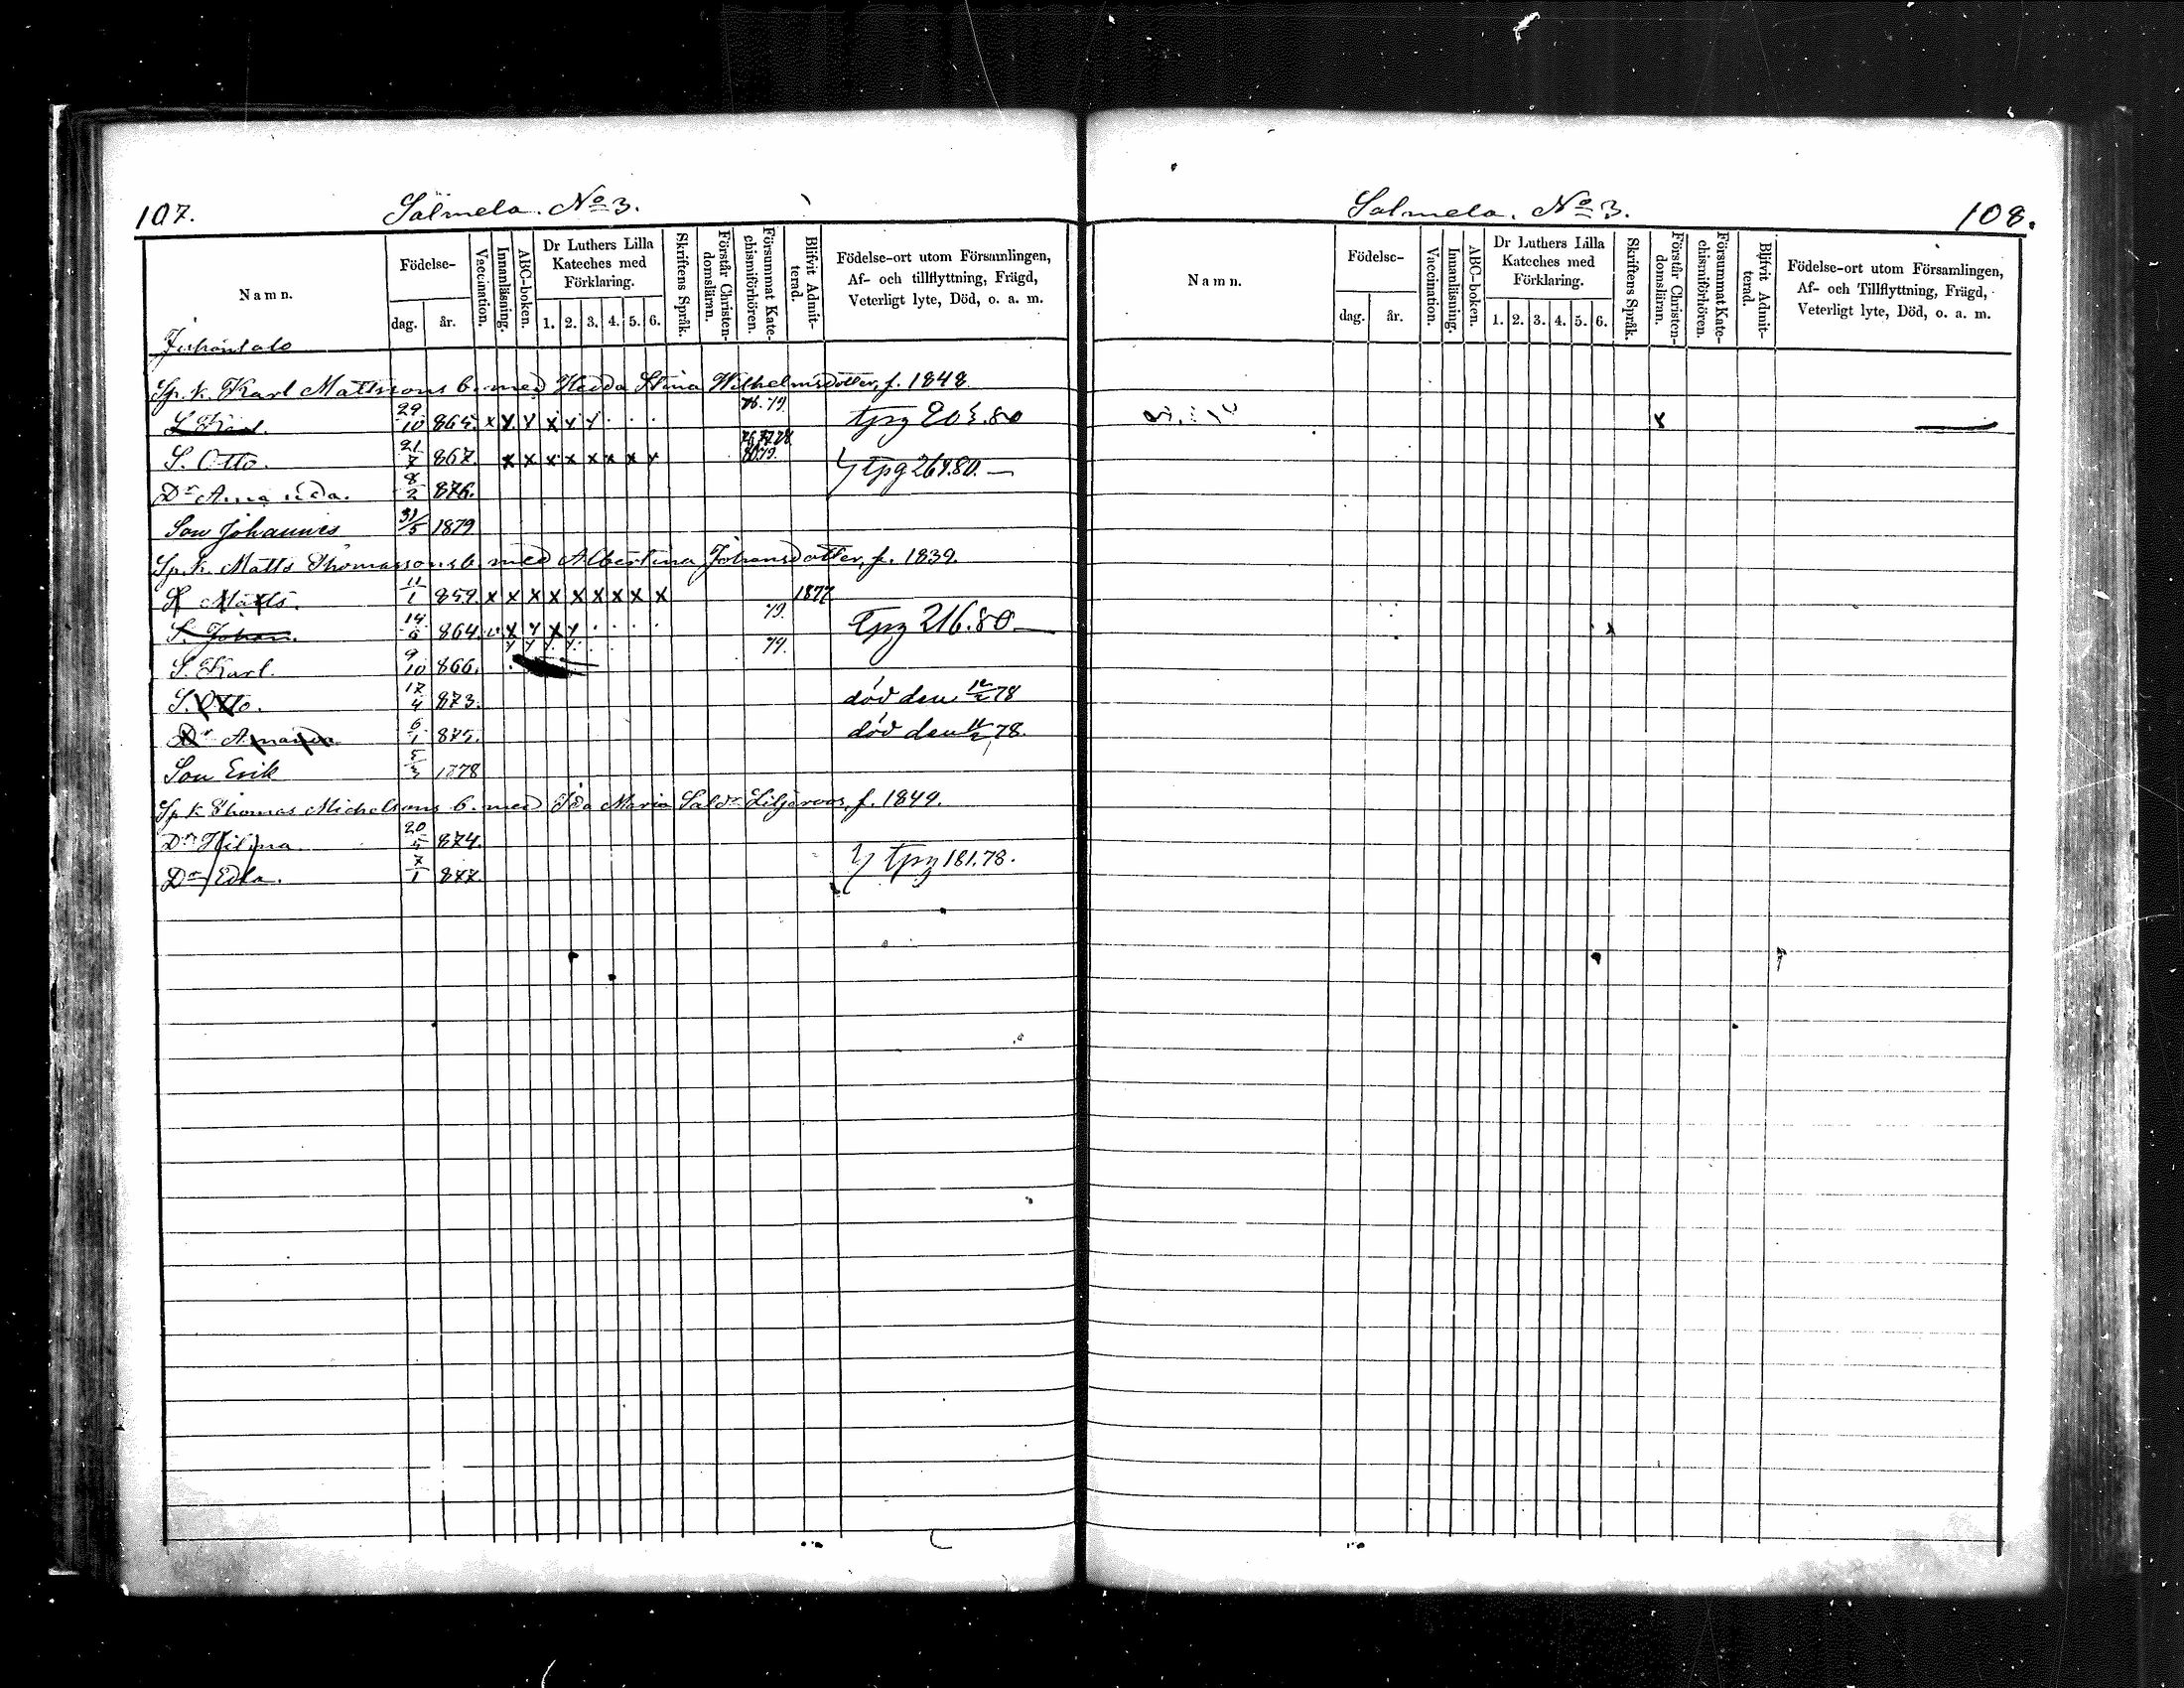 107.
Salmela. No 3.
Namn.
Födelse-
dag. år.
Vaccination.
Innanläsning.
ABC-boken.
Dr Luthers Lilla Kateches med Förklaring.
1. 2. 3. 4. 5. 6.
Skriftens Språk.
Förstår Christen-domsläran.
Försummat Kate-chismiförhören.
Blifvit Admit-terad.
Födelse-ort utom Församlingen,
Af- och tillflyttning, Frägd,
Veterligt lyte, Död, o. a. m.
Juhantalo
Sp. k. Karl Mattssons b. med Hedda Stina Wilhelmsdotter, f. 1848.
S. Karl. 29/10 864. x y y x y y . . . 78. 79. tpg 205.80
S. Otto. 21/7 867. x x x x x x x x 76 77 78 80 79. tpg 269.80. —
Dr Amanda. 8/2 876.
Son Johannes 31/5 1879
Sp. k. Matts Thomassons b. med Albertina Johansdotter, f. 1839.
S. Matts. 11/1 859. x x x x x x x x x 1877
S. Johan. 14/9 864. v. x y x y . . . . 79. tpg 216.80 —
S. Karl. 9/10 866. y y y y . . . 79.
S. Otto. 17/4 873. död den 12/2 78
Dr Amanda 6/1 875. död den 11/2 78.
Son Erik 5/3 1878
Sp k Thomas Michelsons b. med Ida Maria Saldr Liljeroos, f. 1849.
Dr Hilma 20/5 874.
Dr Edla. 7/1 877. tpg 181.78.
Salmela. No 3.
108.
Namn.
Födelse-
dag. år.
Vaccination.
Innanläsning.
ABC-boken.
Dr Luthers Lilla Kateches med Förklaring.
1. 2. 3. 4. 5. 6.
Skriftens Språk.
Förstår Christen-domsläran.
Försummat Kate-chismiförhören.
Blifvit Admit-terad.
Födelse-ort utom Församlingen,
Af- och Tillflyttning, Frägd,
Veterligt lyte, Död, o. a. m.